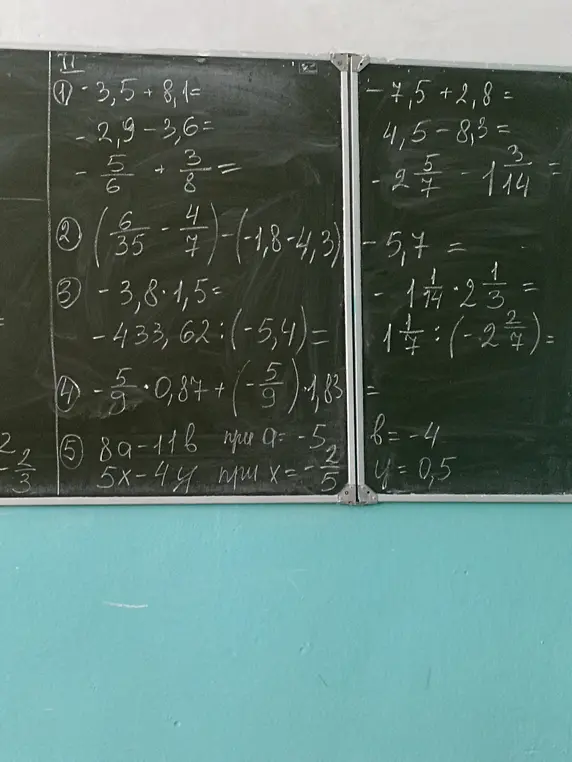 II
① -3,5+8,1= -7,5+2,8=
-2,9-3,6= 4,5-8,3=
-5/6 + 3/8 = -2 5/7 - 1 3/14 =
② (6/35 - 4/7) - (-1,8-4,3) - 5,7 =
③ -3,8·1,5= -1 1/14 · 2 1/3 =
-433,62:(-5,4)= 1 1/7 : (-2 2/7)=
④ -5/9 · 0,87 + (-5/9) · 1,83 =
⑤ 8a-11b при a=-5 b=-4
5x-4y при x=-2/5 y=0,5
-2/3